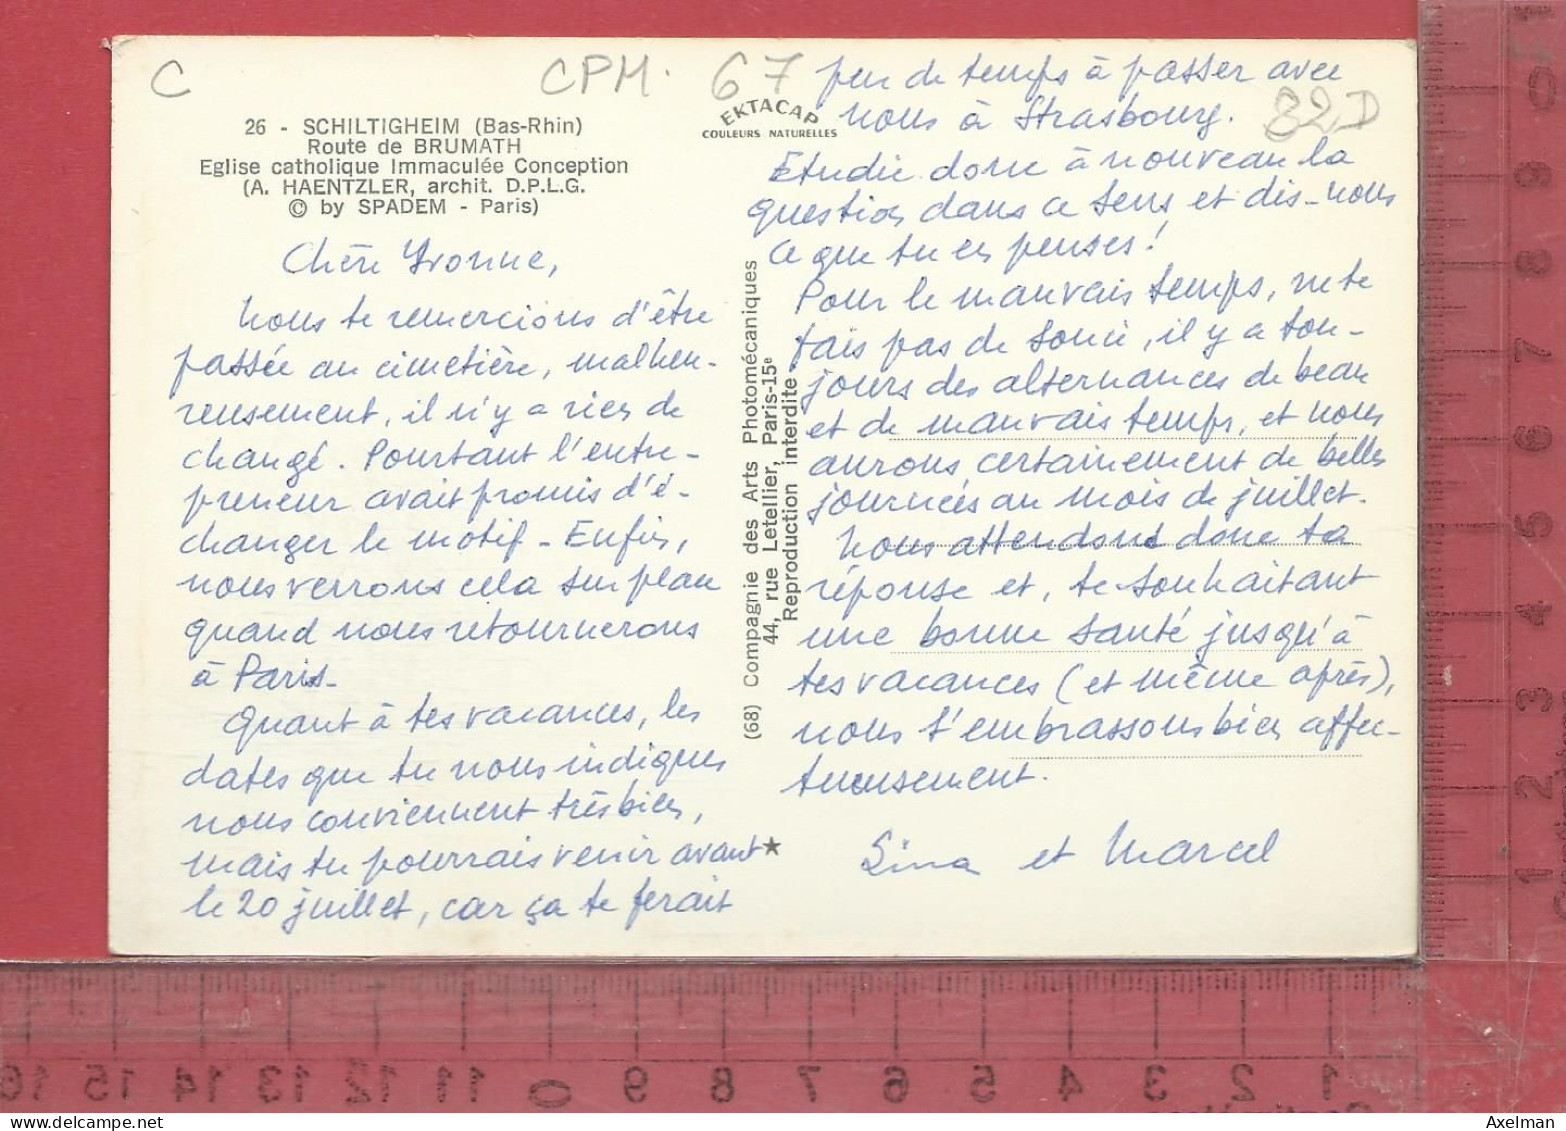 C
CPM. 67
82D
26 - SCHILTIGHEIM (Bas-Rhin)
Route de BRUMATH
Eglise catholique Immaculée Conception
(A. HAENTZLER, archit. D.P.L.G.
© by SPADEM - Paris)
EKTACAP
COULEURS NATURELLES
Chère Yvonne,
Nous te remercions d'être
passée au cimetière, malheu-
reusement, il n'y a rien de
changé. Pourtant l'entre-
preneur avait promis d'é-
changer le motif - Enfin,
nous verrons cela sur place
quand nous retournerons
à Paris.
Quant à tes vacances, les
dates que tu nous indiques
nous conviennent très bien,
mais tu pourrais venir avant
le 20 juillet, car ça te ferait
(68) Compagnie des Arts Photomécaniques
44, rue Letellier, Paris-15e
Reproduction interdite
★
peu de temps à passer avec
nous à Strasbourg.
Etudie donc à nouveau la
question dans ce sens et dis-nous
ce que tu en penses!
Pour le mauvais temps, ne te
fais pas de souci, il y a tou-
jours des alternances de beau
et de mauvais temps, et nous
aurons certainement de belles
journées au mois de juillet.
Nous attendons donc ta
réponse et, te souhaitant
une bonne santé jusqu'à
tes vacances (et même après),
nous t'embrassons bien affec-
tueusement.
Lina et Marcel
16 15 14 13 12 11 0 9 8 7 6 5 4 3 2 1
1 2 3 4 5 6 7 8 9
Axelman